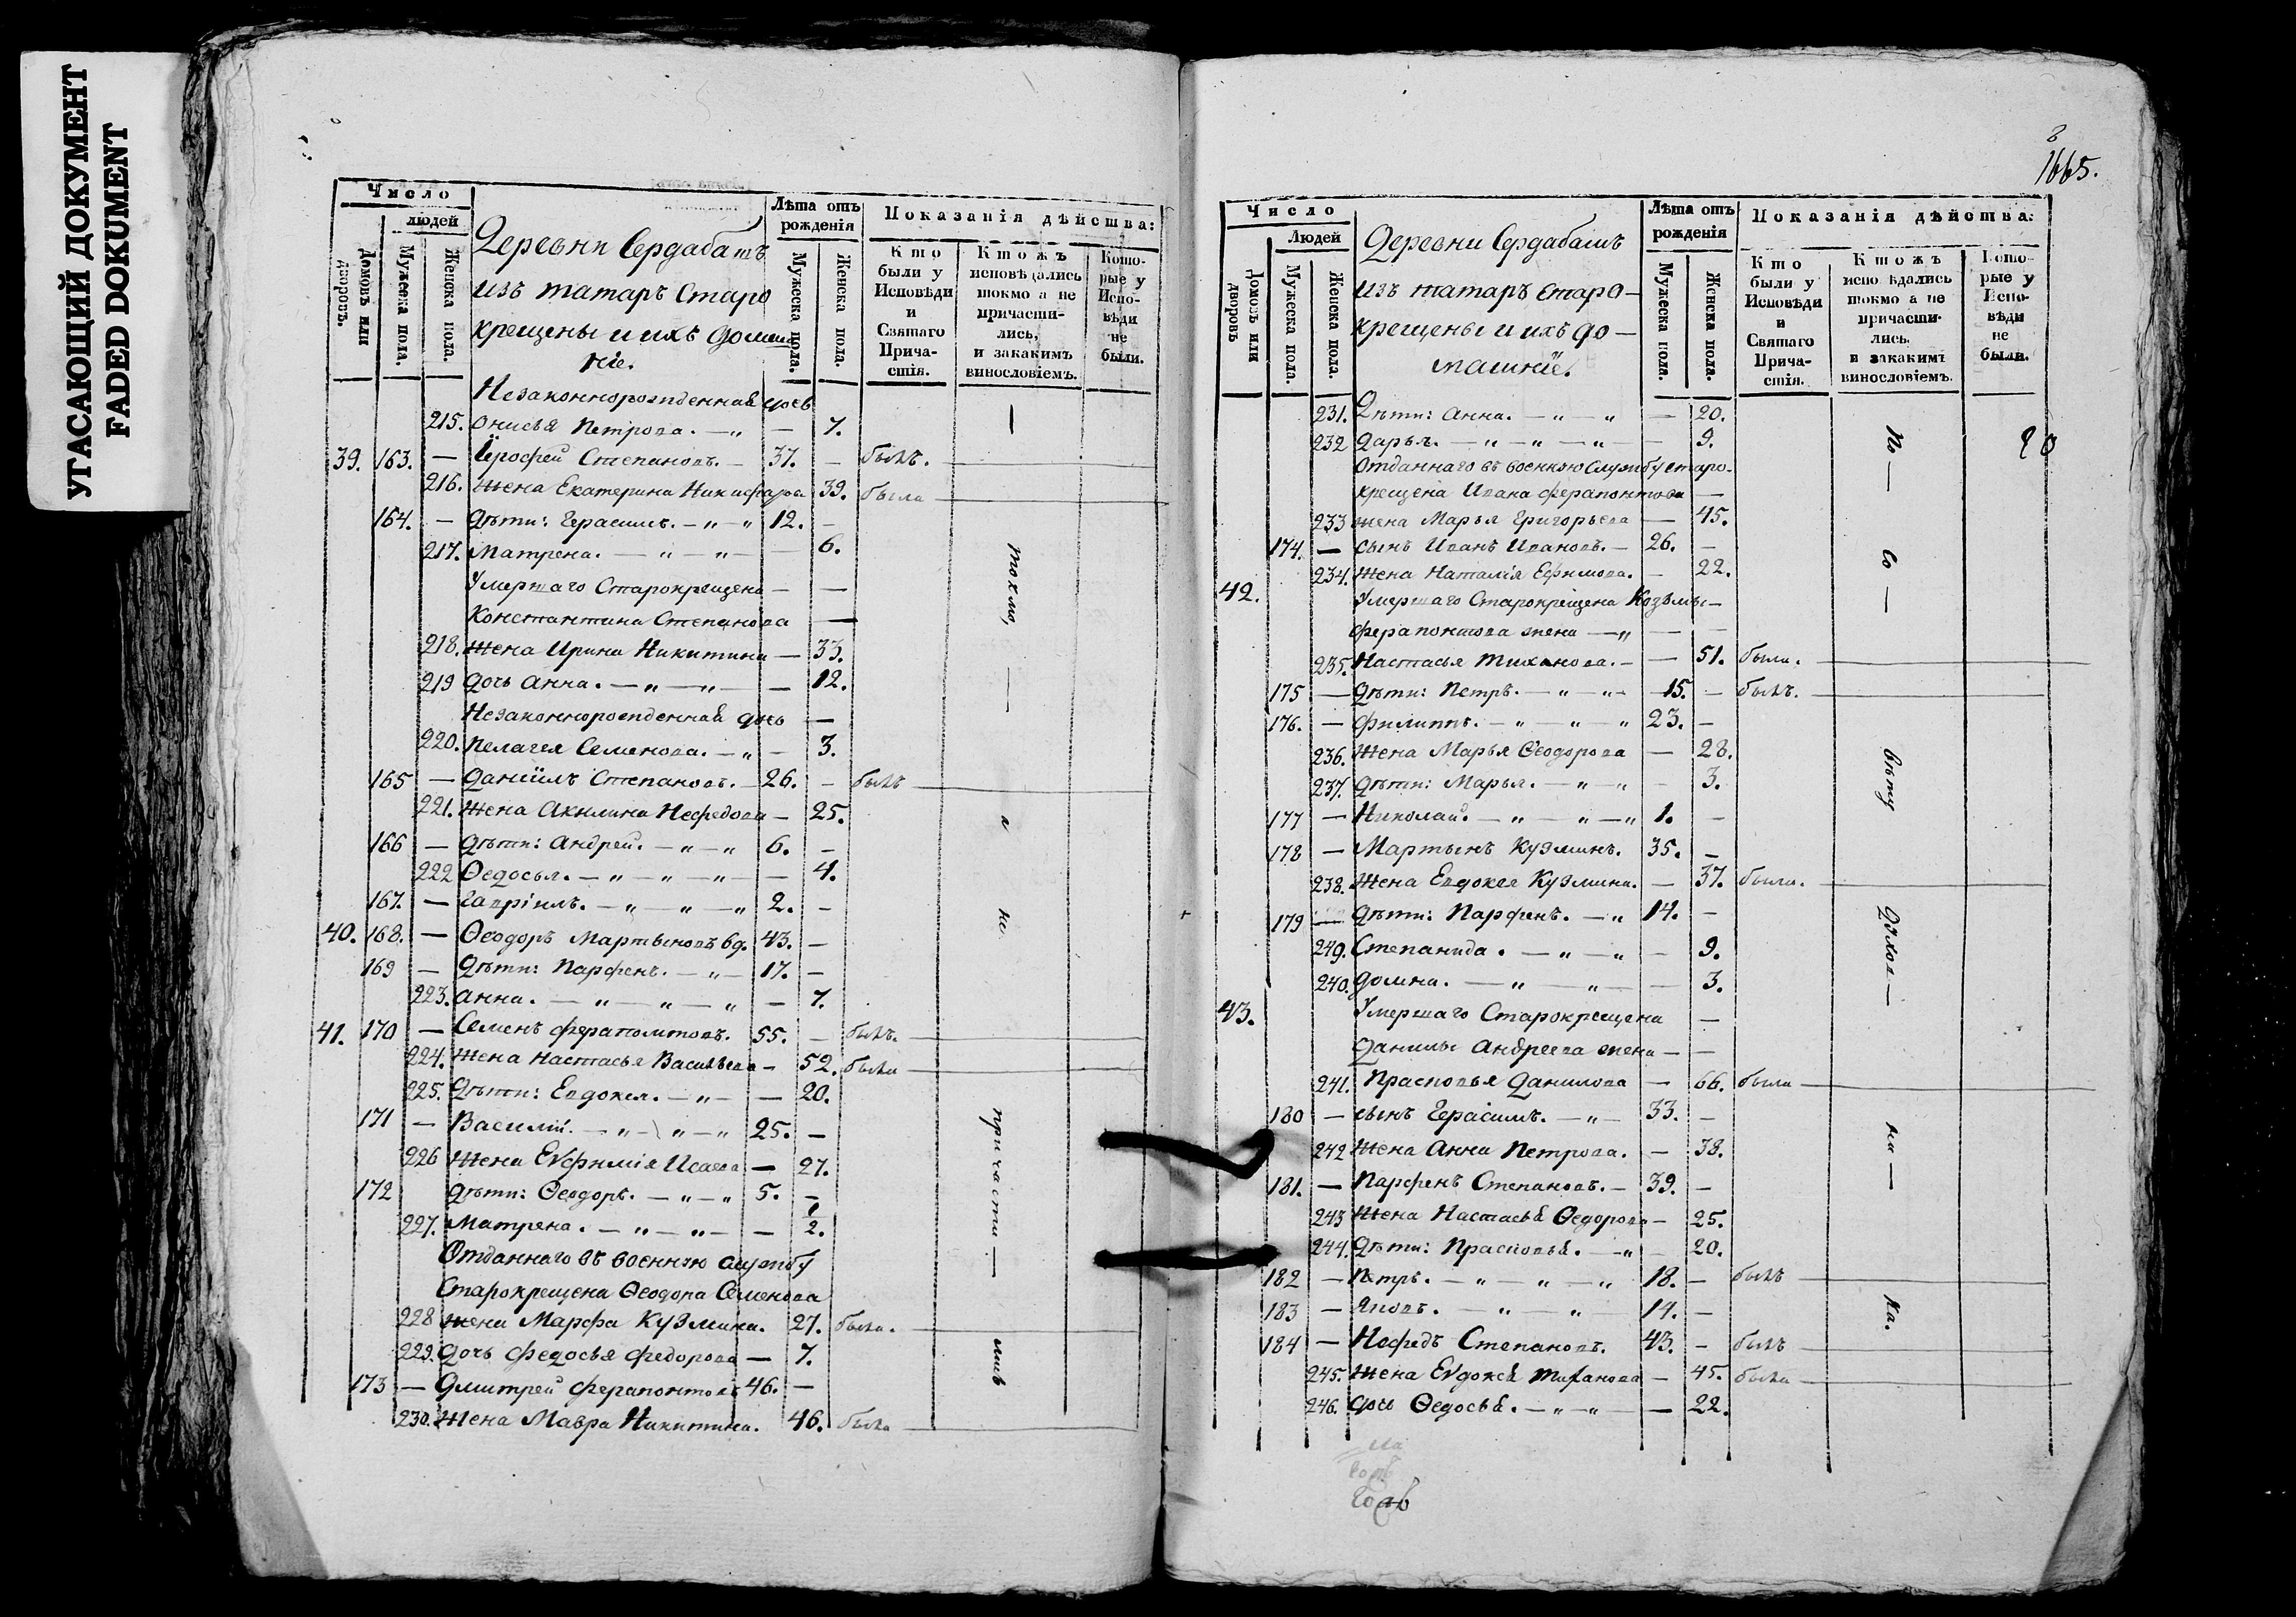 УГАСАЮЩИЙ ДОКУМЕНТ
FADED DOKUMENT
Число
людей
Домовъ или дворовъ.
Мужеска пола.
Женска пола.
Деревни Сердабашъ
изъ татаръ Старо
крещены и ихъ домаш
ніе.
Лѣта отъ рожденія
Мужеска пола.
Женска пола.
Показанія дѣйства:
Кто были у Исповѣди и Святаго Прича- стія.
Ктожъ исповѣдались токмо а не причасти- лись, и закакимъ винословіемъ.
Кото- рые у Испо- вѣди не были.
Незаконнорожденная дочь
215. Онисья Петрова. — „ — 7. —
39. 163. — Ѥрофей Степановъ. — 37. — былъ.
216. жена Екатерина Никифорова 39. была
164. — дѣти: Герасимъ. — „ — „ 12. —
217. Матрена. — „ — „ — — 6.
Умершаго Старокрещена — —
Константина Степанова —
218. жена Ирина Никитина — 33.
219 дочь Анна. — „ — „ — — 12.
Незаконнорожденная дочь —
220. Пелагея Семенова. — „ — 3.
165 — Даніилъ Степановъ. — 26. — былъ
221. жена Акилина Нефедова — 25.
166 — дѣти: Андрей. — „ — „ 6. —
222 Ѳедосья. — „ — „ — „ — — 4.
167. — Гавріилъ. — „ — „ — „ 2. —
40. 168. — Ѳеодоръ Мартыновъ вд. 43. —
169 — дѣти: Парфенъ. — „ — 17. —
223. Анна. — „ — „ — „ — 7.
41. 170 — Семенъ Ферапонтовъ. 55. — былъ.
224. жена Настасья Васильева — 52. была
225. дѣти: Евдокея. — „ — — 20.
171 — Василій. — „ — „ — „ 25. —
226 жена Еѵфимія Исаева — 27.
172 дѣти: Ѳеодоръ. — „ — „ 5. —
227. Матрена. — „ — „ — — 2.
Отданнаго въ военную службу
Старокрещена Ѳеодора Семенова
228 жена Марфа Кузмина. 27. была.
229. дочь Федосья Федорова — 7.
173 — Дмитрей Ферапонтовъ 46. —
230. жена Мавра Никитина. 46. была
токмо, — а не причасти — лись
1665.
Число
Людей
Домовъ или дворовъ
Мужеска пола.
Женска пола.
Деревни Сердабашъ
изъ татаръ старо—
крещены и ихъ до—
машніе.
Лѣта отъ рожденія
Мужеска пола.
Женска пола.
Показанія дѣйства:
Кто были у Исповѣди и Святаго Прича- стія.
Ктожъ испо ѣдались токмо а не причасти- лись. и закакимъ винословіемъ.
Кото- рые у Испо- вѣди не были.
231. Дѣти: Анна. — „ — „ — 20.
232 Дарья. — „ — „ — „ — — 9.
Отданнаго въ военную Службу старо-
крещена Ивана Ферапонтова —
233 жена Марья Григорьева — 45.
174. — сынъ Иванъ Ивановъ. — 26. —
234. жена Наталія Ефимова. — 22.
42. Умершаго Старокрещена Козьмы —
Ферапонтова жена — „ — —
235. Настасья Тиханова. — — 51. была.
175 — дѣти: Петръ. — „ — „ — 15. — былъ.
176. — Филиппъ. — „ — „ — „ 23. —
236. жена Марья Ѳеодорова — 28.
237. дѣти: Марья. — „ — „ — 3.
177 — Николай. — „ — „ — „ 1. —
178 — Мартынъ Кузминъ. 35. —
238. жена Евдокея Кузмина. — 37. была.
179 — дѣти: Парфенъ. — „ 14. —
249. Степанида. — „ — „ — 9.
240. Домна. — „ — „ — — 3.
43. Умершаго Старокрещена —
Данилы Андреева жена — —
241. Прасковья Данилова — 66. была
180 — сынъ Герасимъ. — „ — 33. —
242 жена Анна Петрова. — 38.
181. — Парфенъ Степановъ. — 39. —
243 жена Настасья Ѳедорова — 25.
244. дѣти: Прасковья. — „ — 20.
182 — Петръ. — „ — „ — „ 18. — былъ
183 — Яковъ. — „ — „ 14. —
184 — Нефедъ Степановъ. 43. — былъ
245. жена Еѵдокея Тиханова — 45. была
246. дочь Ѳедосья. — „ — „ — — 22.
по — со — вѣту Духов — на — ка.